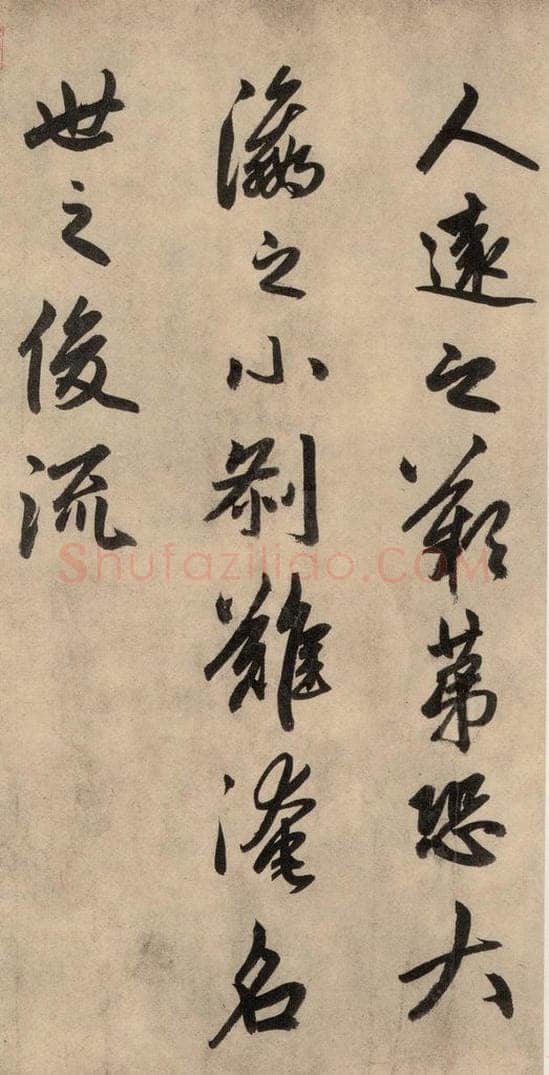 人遠之歎第恐大
瀛之小刹難淹名
世之俊流
Shufaziliao.COM